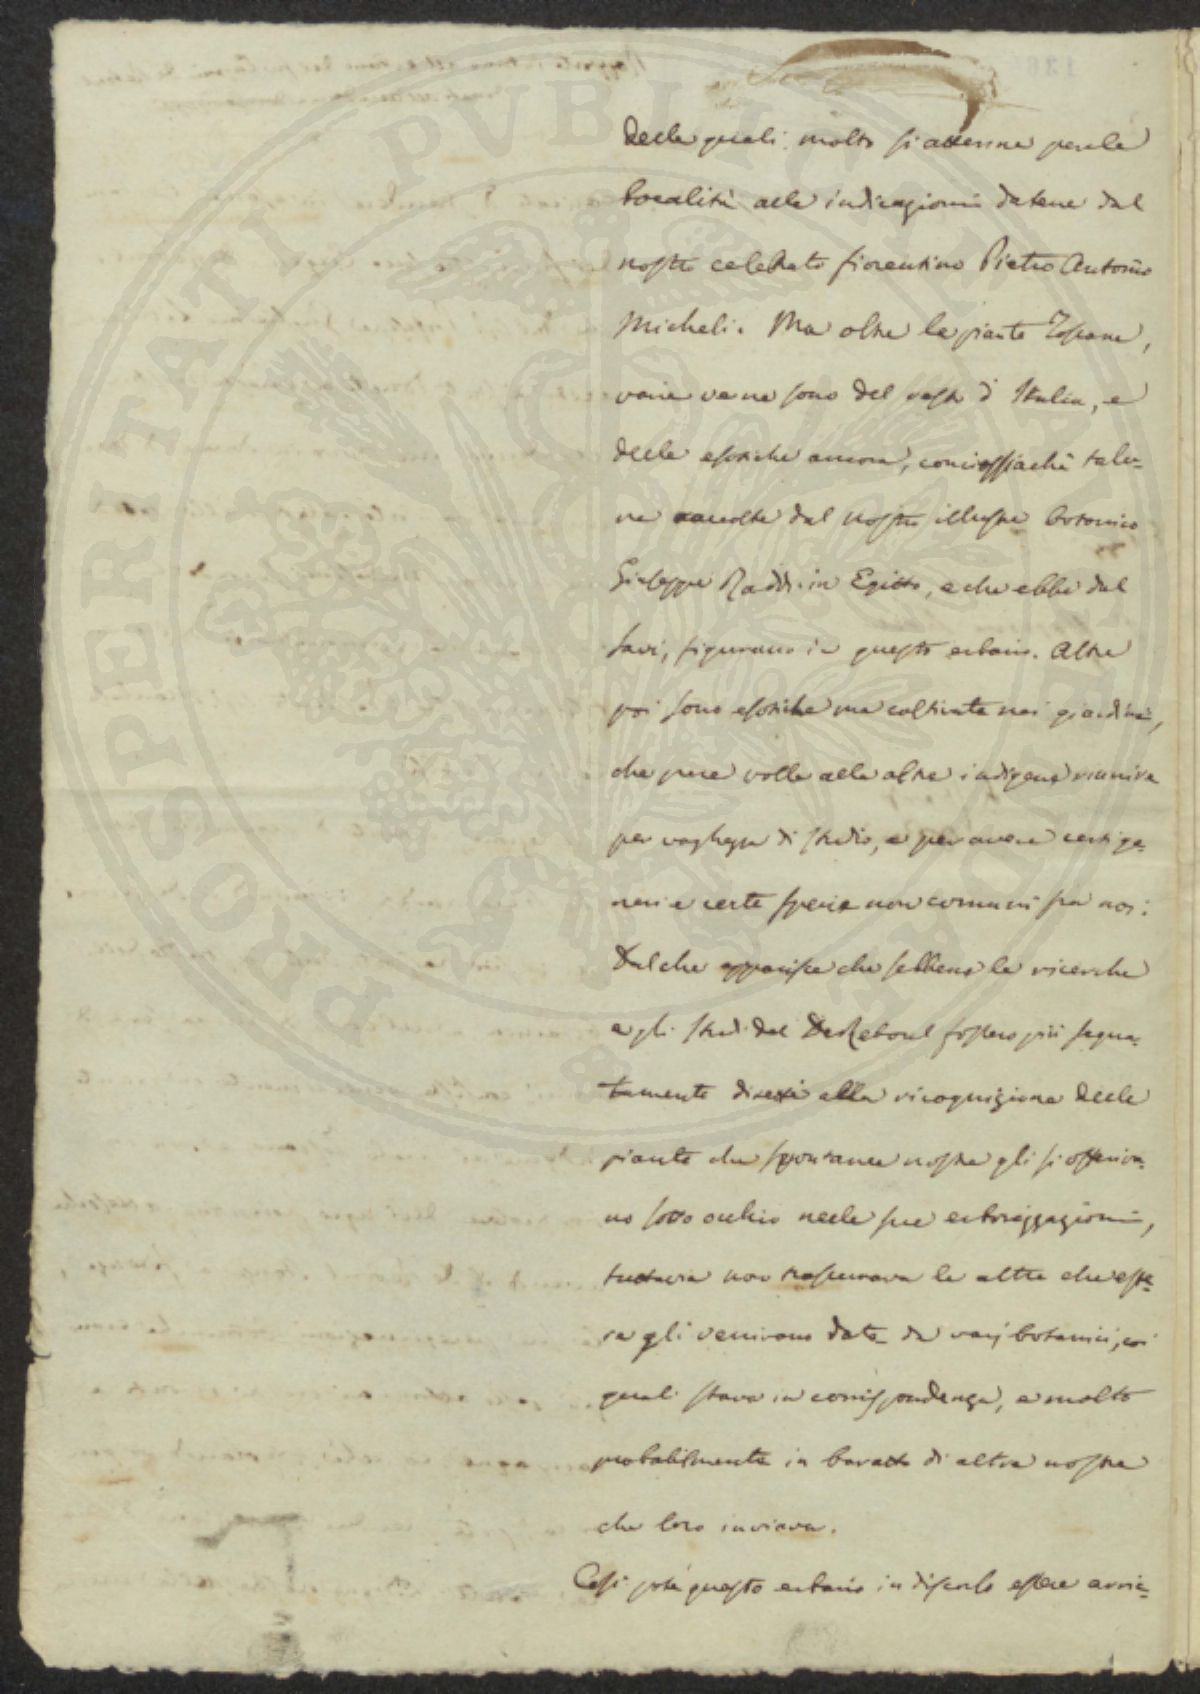 delle quali molto si attenne per le
località alle indicazioni datene dal
nostro celebrato fiorentino Pietro Antonio
Micheli. Ma oltre le piante Toscane,
varie ve ne sono del resto d'Italia, e
delle esotiche ancora, conciossiachè talu-
ne raccolte dal nostro illustre botanico
Giuseppe Raddi in Egitto, e che ebbe dal
Savi, figurano in questo erbario. Altre
poi sono esotiche ma coltivate nei giardini,
che pure volle alle altre indigene riunire
per vaghezza di studio, e per avere certi ge-
neri e certe specie non comuni fra noi:
Dal che apparisce che sebbene le ricerche
e gli studi del De Reboul fossero più segna-
tamente diretti alla ricognizione delle
piante che spontanee nostre gli si offeriva-
no sott'occhio nelle sue erborizzazioni,
tuttavia non trascurava le altre che este-
re gli venivano date da varj botanici, coi
quali stava in corrispondenza, e molto
probabilmente in baratto di altre nostre
che loro inviava.
Così potè questo erbario in discorso essere arric-
PROSPERITATI PVBLICAE AVGENDAE